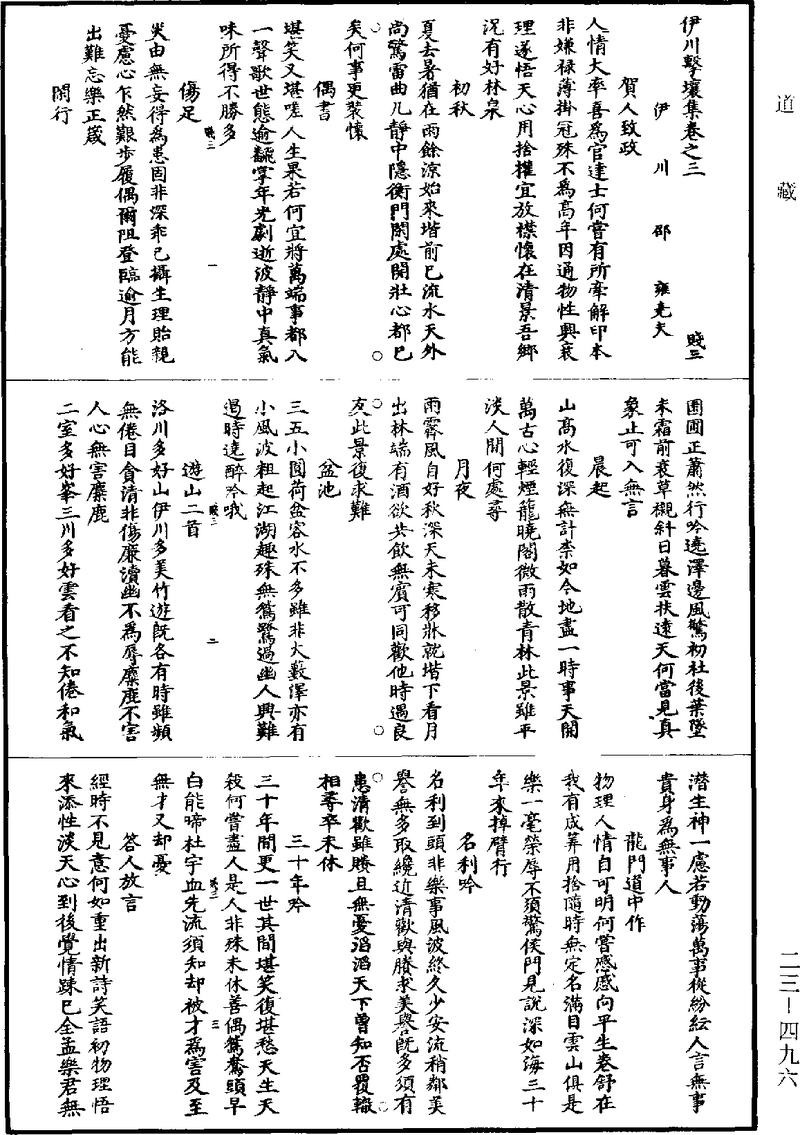 道藏
伊川擊壤集卷之三　賤三
伊川邵雍堯夫
賀人致政
人情大率喜爲官達士何嘗有所牽解印本
非嫌禄薄掛冠殊不爲高年因通物性興衰
理遂悟天心用捨權宜放襟懷在清景吾鄉
況有好林泉
初秋
夏去暑猶在雨餘涼始來堦前已流水天外
尚驚雷曲几靜中隱衡門閑處開壯心都已
矣何事更裝懷
偶書
堪笑又堪嗟人生果若何宜將萬端事都入
一聲歌世態逾飜掌年光劇逝波靜中真氣
味所得不勝多
傷足
災由無妄得爲患固非深乖己攝生理貽親
憂慮心乍然艱步履偶爾阻登臨逾月方能
出難忘樂正箴
閑行
賤三　一
園圃正蕭然行吟遶澤邊風驚初社後葉墜
未霜前衰草襯斜日暮雲扶遠天何當見真
象止可入無言
晨起
山高水復深無計柰如今地盡一時事天開
萬古心輕煙籠曉閣微雨散青林此景雖平
淡人間何處尋
月夜
雨霽風自好秋深天未寒移牀就堦下看月
出林端有酒欲共飲無賓可同歡他時遇良
友此景復求難
盆池
三五小圓荷盆容水不多雖非大藪澤亦有
小風波粗起江湖趣殊無鴛鷺過幽人興難
遏時遶醉吟哦
遊山二首
洛川多好山伊川多美竹遊旣各有時雖頻
無倦目貪清非傷廉瀆幽不爲辱麋鹿不害
人心無害麋鹿
二室多好峯三川多好雲看之不知倦和氣
賤三　二
潛生神一慮若動蕩萬事從紛紜人言無事
貴身爲無事人
龍門道中作
物理人情自可明何嘗慼慼向平生卷舒在
我有成筭用捨隨時無定名滿目雲山俱是
樂一毫榮辱不須驚侯門見說深如海三十
年來掉臂行
名利吟
名利到頭非樂事風波終久少安流稍鄰美
譽無多取纔近清歡與賸求美譽旣多須有
患清歡雖賸且無憂滔滔天下曾知否覆轍
相尋卒未休
三十年吟
三十年間更一世其間堪笑復堪愁天生天
殺何嘗盡人是人非殊未休善偶鴛鴦頭早
白能啼杜宇血先流須知却被才爲害及至
無才又却憂
答人放言
經時不見意何如重出新詩笑語初物理悟
來添性淡天心到後覺情踈已全孟樂君無
賤三　三
二三－四九六